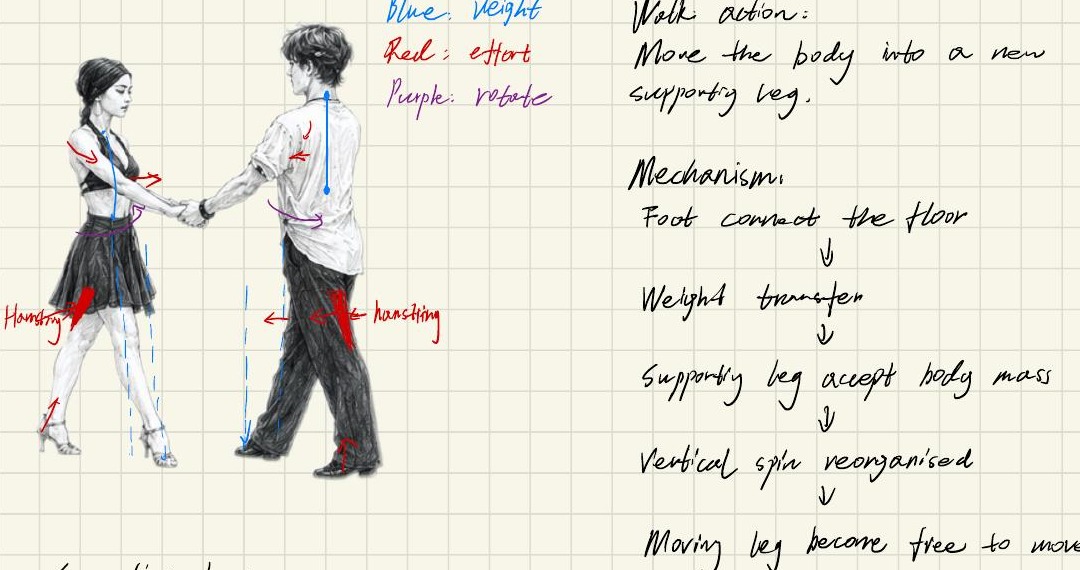 Blue: Weight
Red: effort
Purple: rotate
Hamstring
hamstring
Walk action:
Move the body into a new
supportig leg.
Mechanism:
Foot connect the floor
↓
Weight transfer
↓
Supportig leg accept body mass
↓
Vertical spin reorganised
↓
Moving leg become free to move